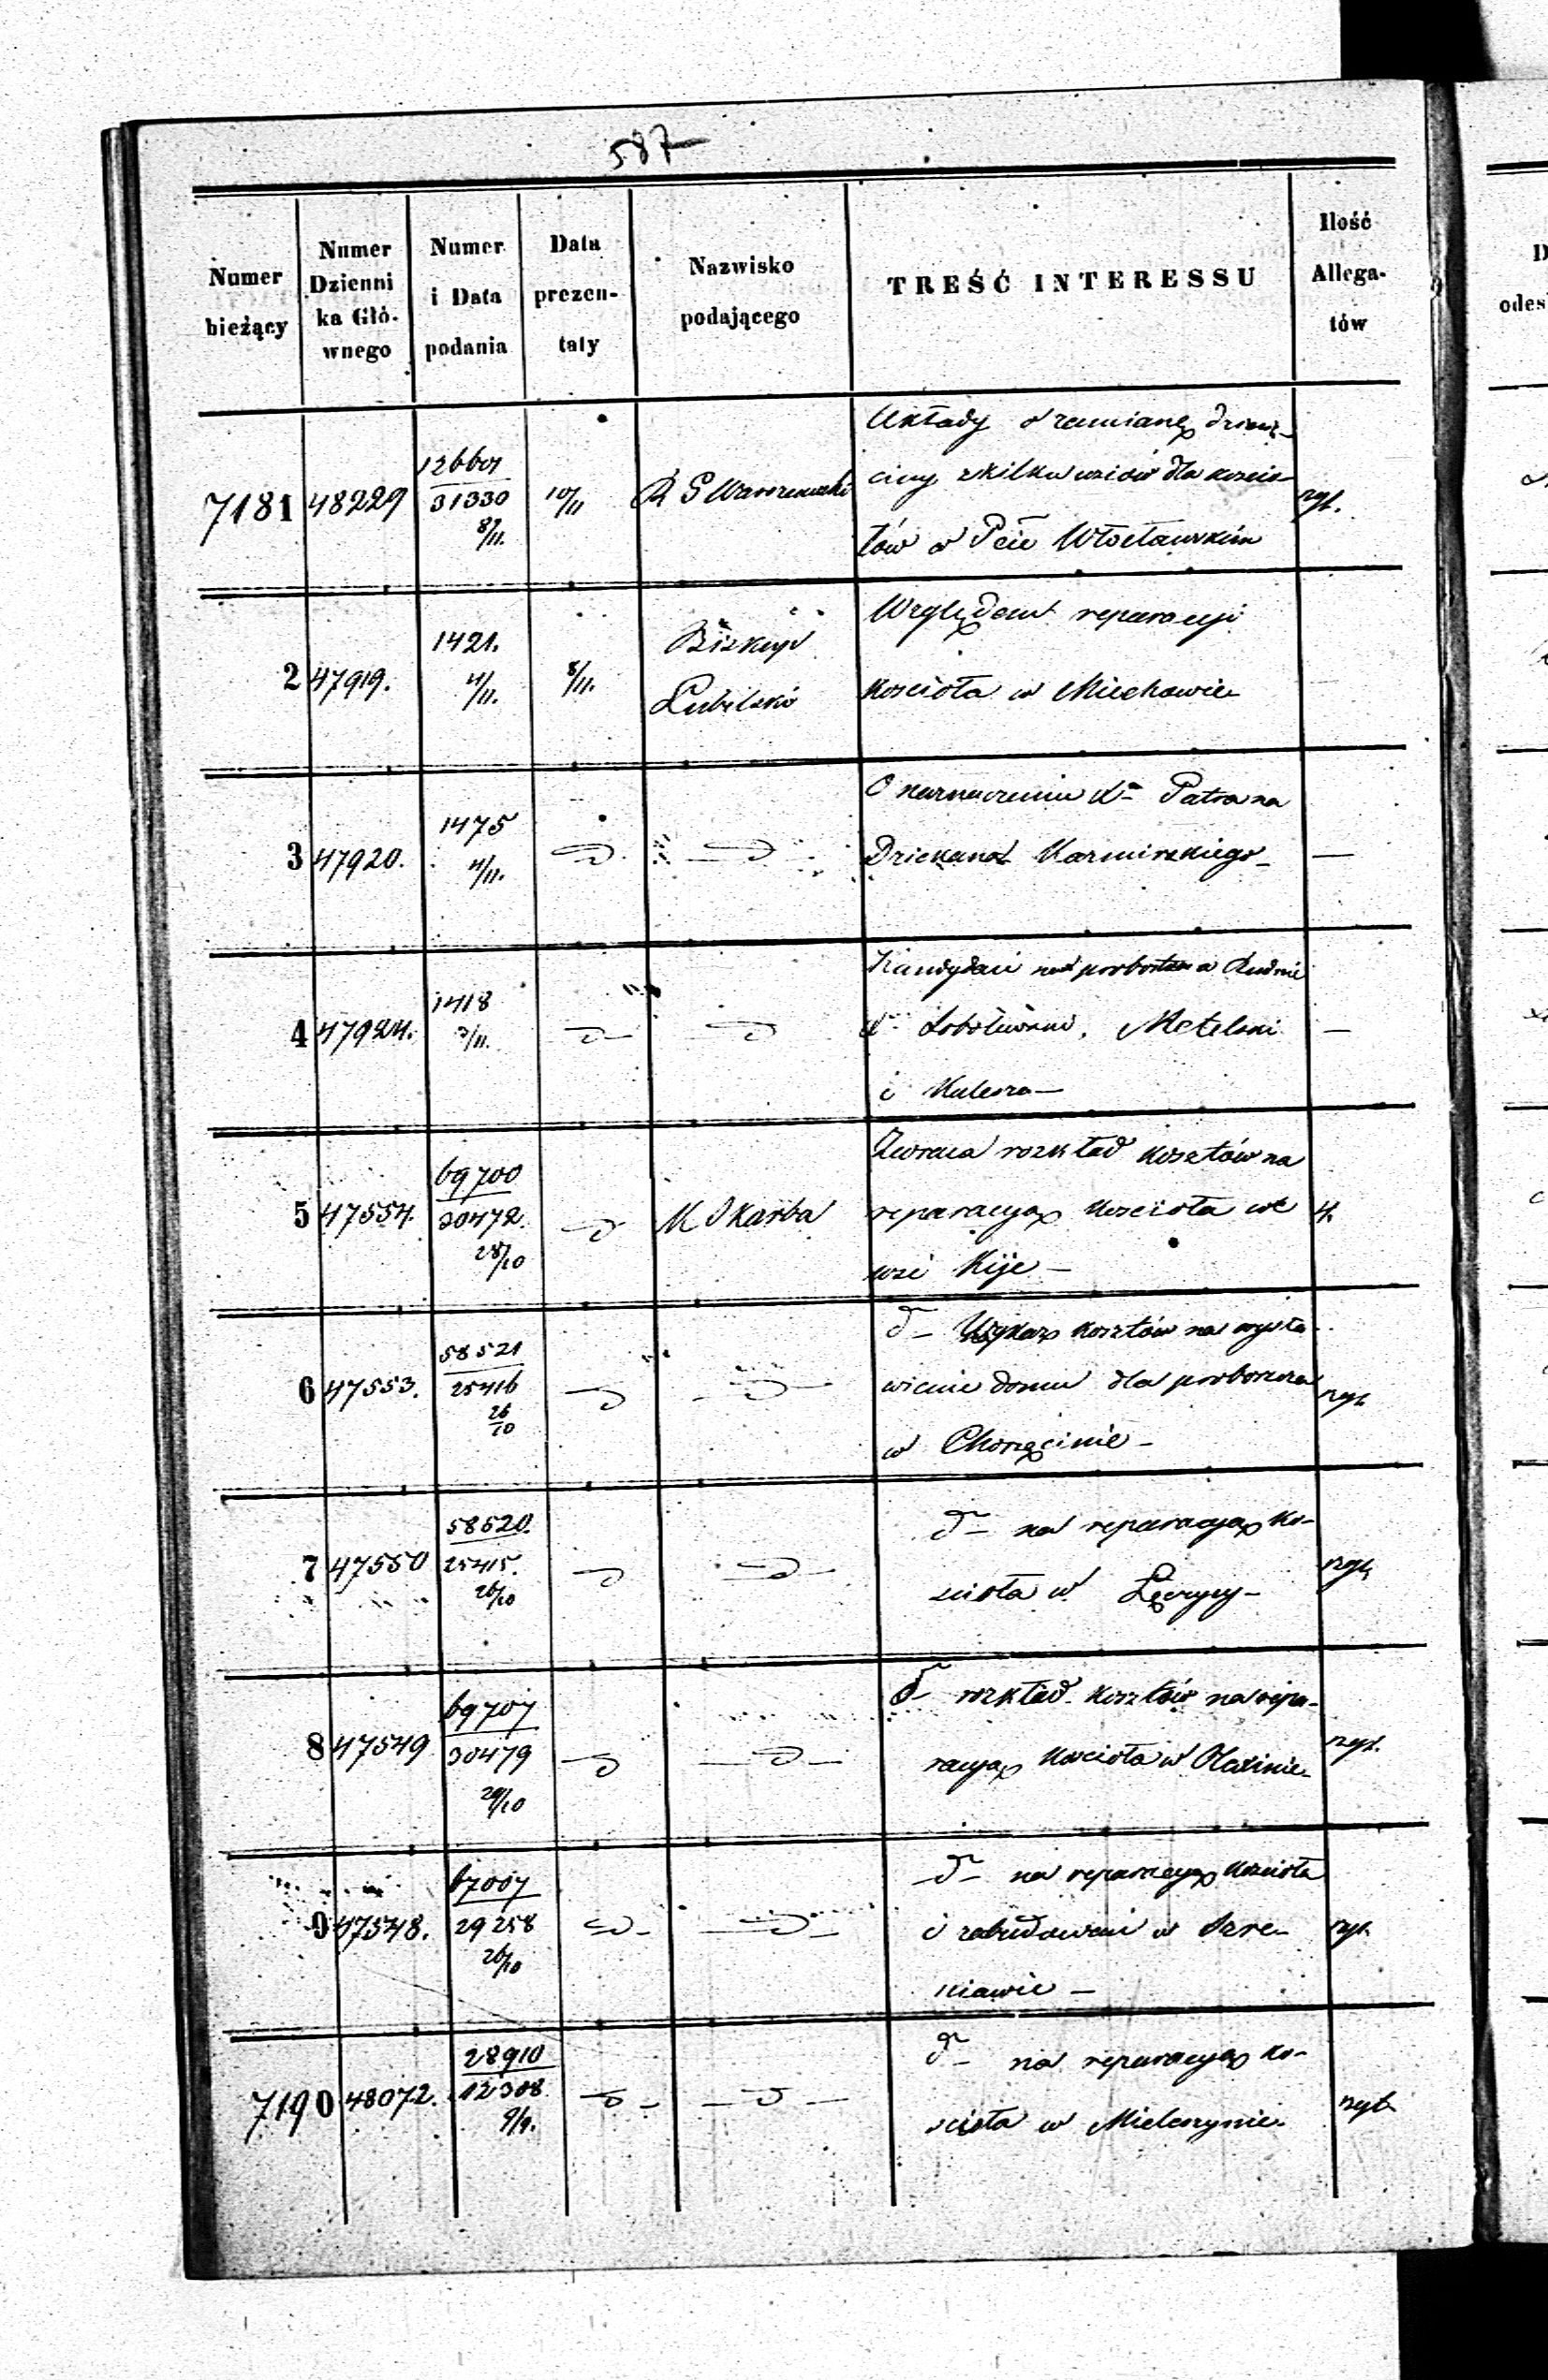 587
Numer bieżący | Numer Dzienni ka Głó- wnego | Numer i Data podania | Data prezen- taty | Nazwisko podającego | TREŚĆ INTERESSU | Ilość Allega- tów
7181 | 48229 | 31330 8/11. | 10/11 | R G Warszawski | Układy o zamianę dzies-
ciny z kilku wsiów dla kościo-
łów w Pcie Włocławskim
2 | 47919. | 1421. 4/11. | 8/11. | Biskup
Lubelski | Względem reparacji
kościoła w Miechowie
3 | 47920. | 1475 4/11. | O naznaczeniu Xa Patrona
Dziekanat | —
4 | 47924. | 1418 3/11. | Kandydaci na probostwo w Rudnie
Metelski
i Kulesza — | —
5 | 47554. | 69700 30472. 28/10 | K Skarbu | Zwraca rozkład kosztów na
reparacyą kościoła we
wsi Kije — | 4.
6 | 47553. | 58521 25416 26/10 | d— Wykaz kosztów na wysta-
wienie domu dla proboszcza
w Chorzęcinie —
7 | 47550 | 58520. 25415. 26/10 | d— na reparacyą ko-
ścioła w Łęczycy —
8 | 47549 | 69707 30479 29/10 | d— rozkład kosztów na repa-
racyą kościoła w
9 | 47548. | 67007 29258 26/10 | d— na reparacyą kościoła
i zabudowań w Szre-
niawie —
7190 | 48072. | 28910 12308. 9/9. | d— na reparacyą ko-
ścioła w Mieleszynie
D
odes